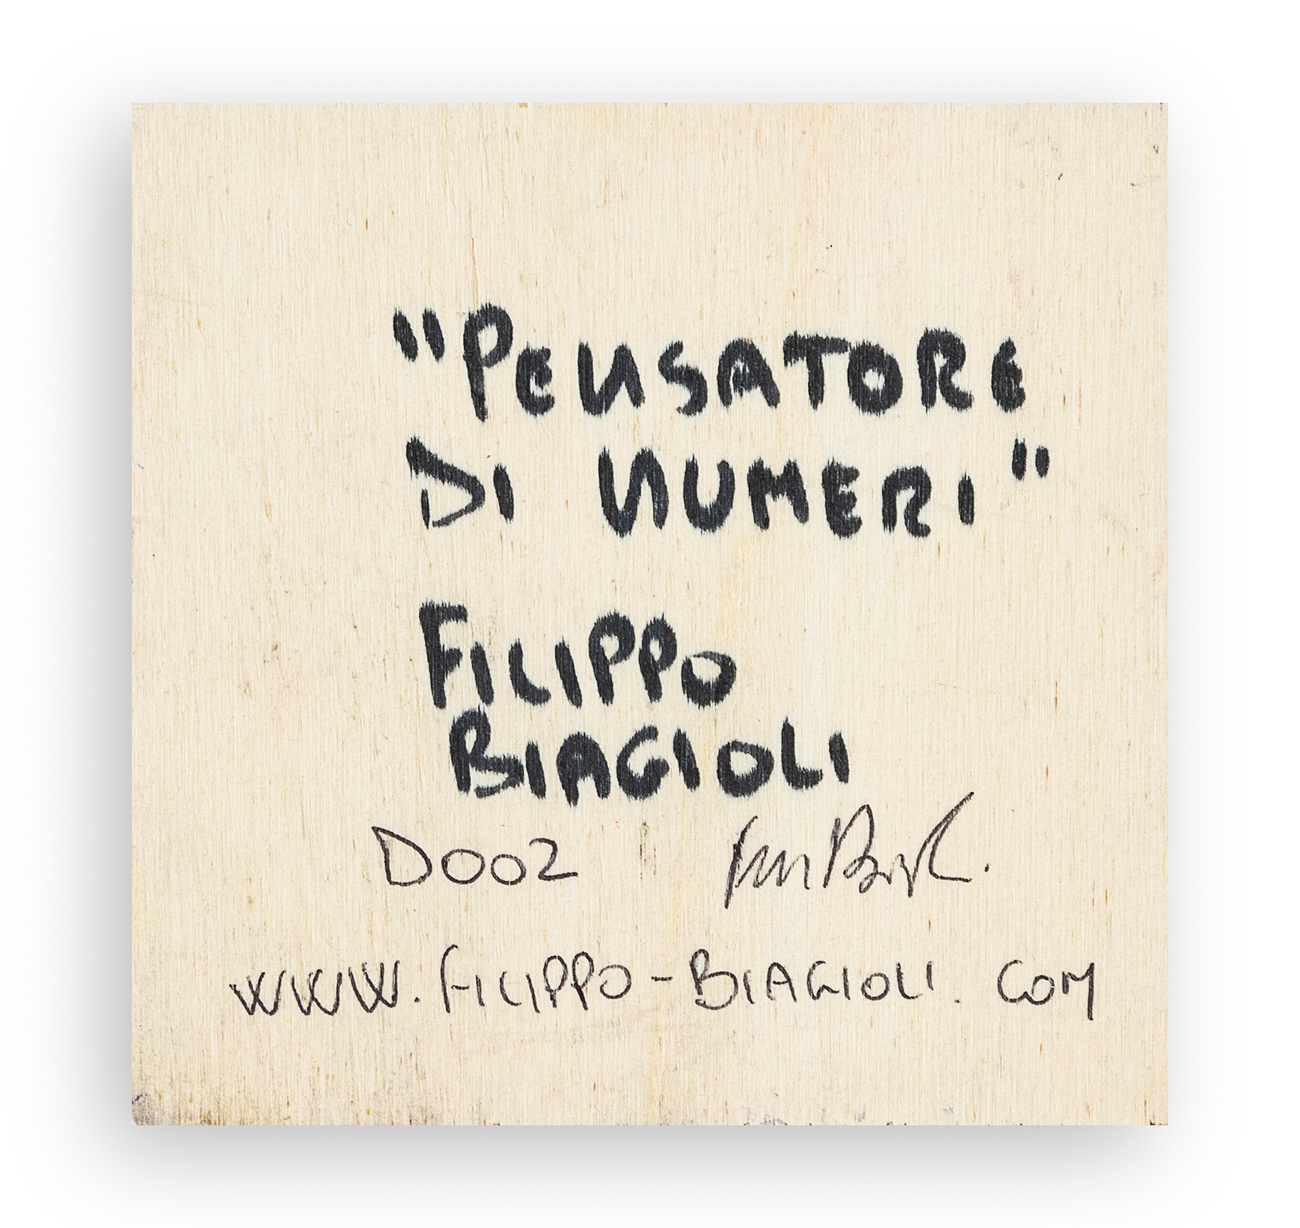 "PENSATORE
DI NUMERI"
FILIPPO
BIAGIOLI
D002
WWW.FILIPPO-BIAGIOLI.COM